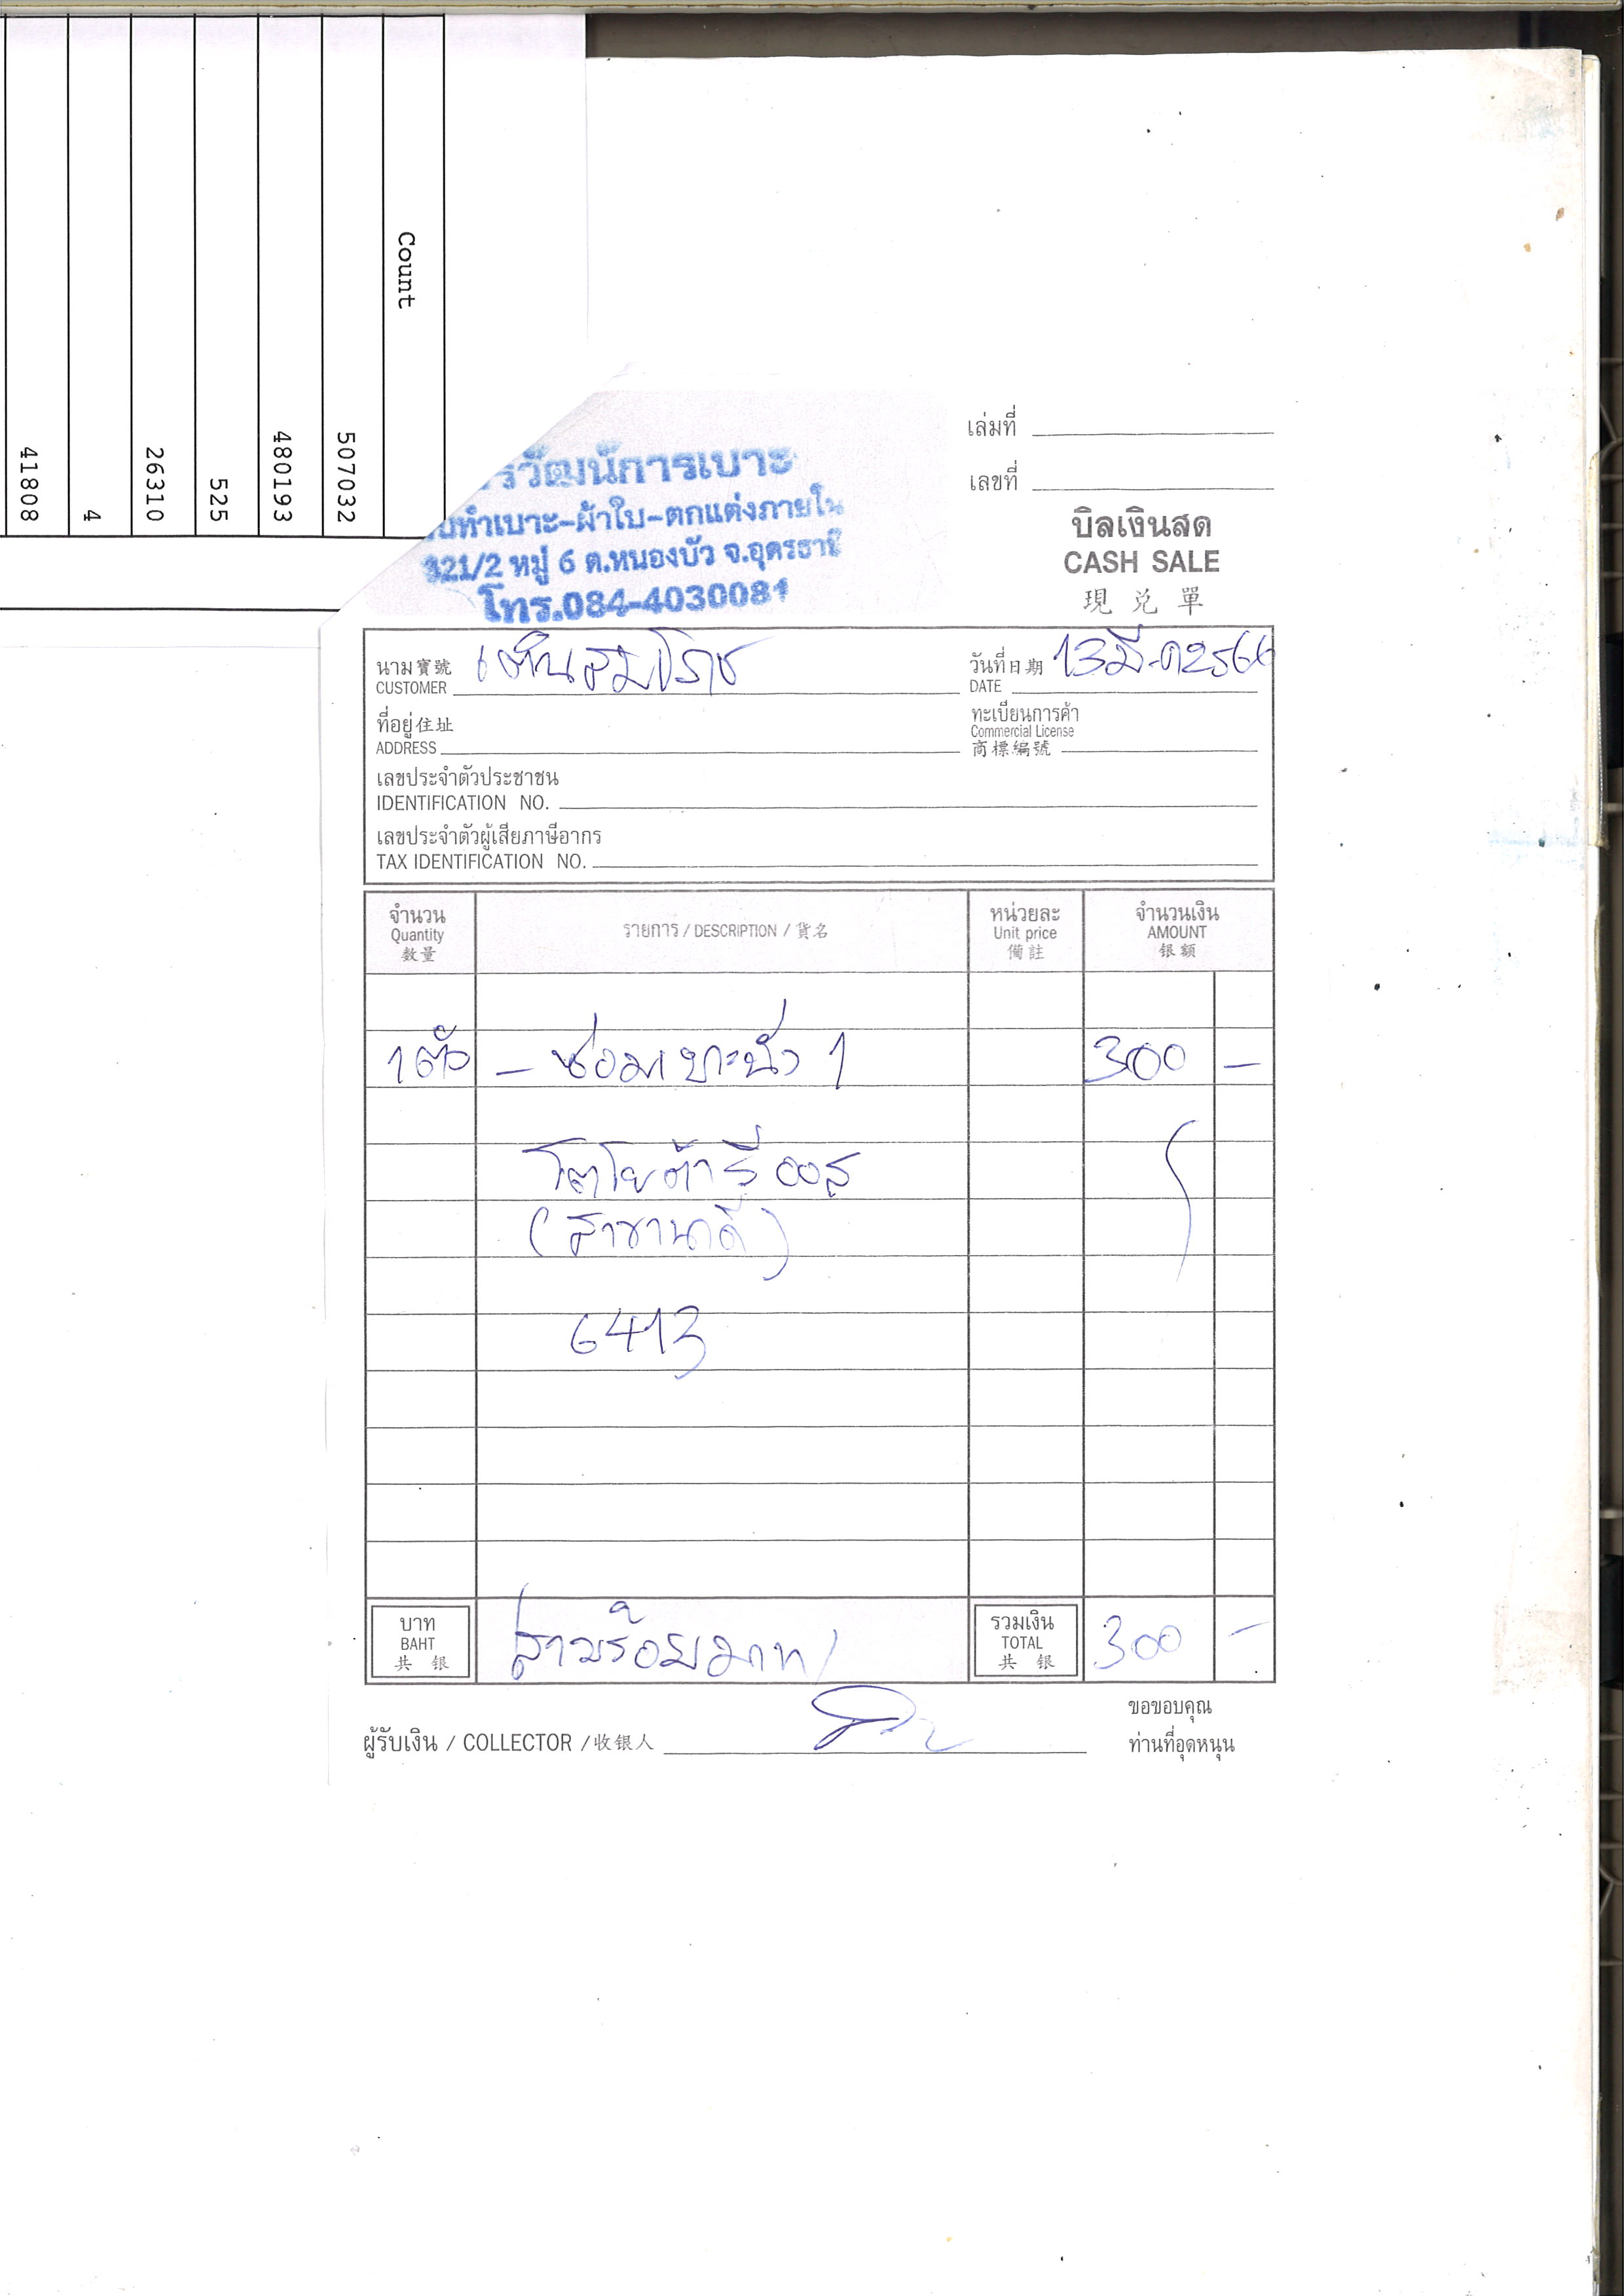 Count
507032
480193
525
26310
4
41808
รวัฒน์การเบาะ
ทำเบาะ-ผ้าใบ-ตกแต่งภายใน
321/2 หมู่ 6 ต.หนองบัว จ.อุดรธานี
โทร.084-4030081
เล่มที่
เลขที่
บิลเงินสด
CASH SALE
現 兑 單
นาม寶號 CUSTOMER
วันที่日期 DATE 13 มี.ค 2566
ที่อยู่住址 ADDRESS
ทะเบียนการค้า
Commercial License
商標編號
เลขประจำตัวประชาชน
IDENTIFICATION NO.
เลขประจำตัวผู้เสียภาษีอากร
TAX IDENTIFICATION NO.
จำนวน Quantity 数量
รายการ / DESCRIPTION / 貨名
หน่วยละ Unit price 備註
จำนวนเงิน AMOUNT 银额
1 ตัว - ซ่อมเบาะนั่ง 1 300 -
โตโยต้าวีออส
(สาขานาดี)
6413
บาท BAHT 共 银 สามร้อยบาท รวมเงิน TOTAL 共 银 300 -
ผู้รับเงิน / COLLECTOR / 收银人
ขอขอบคุณ
ท่านที่อุดหนุน